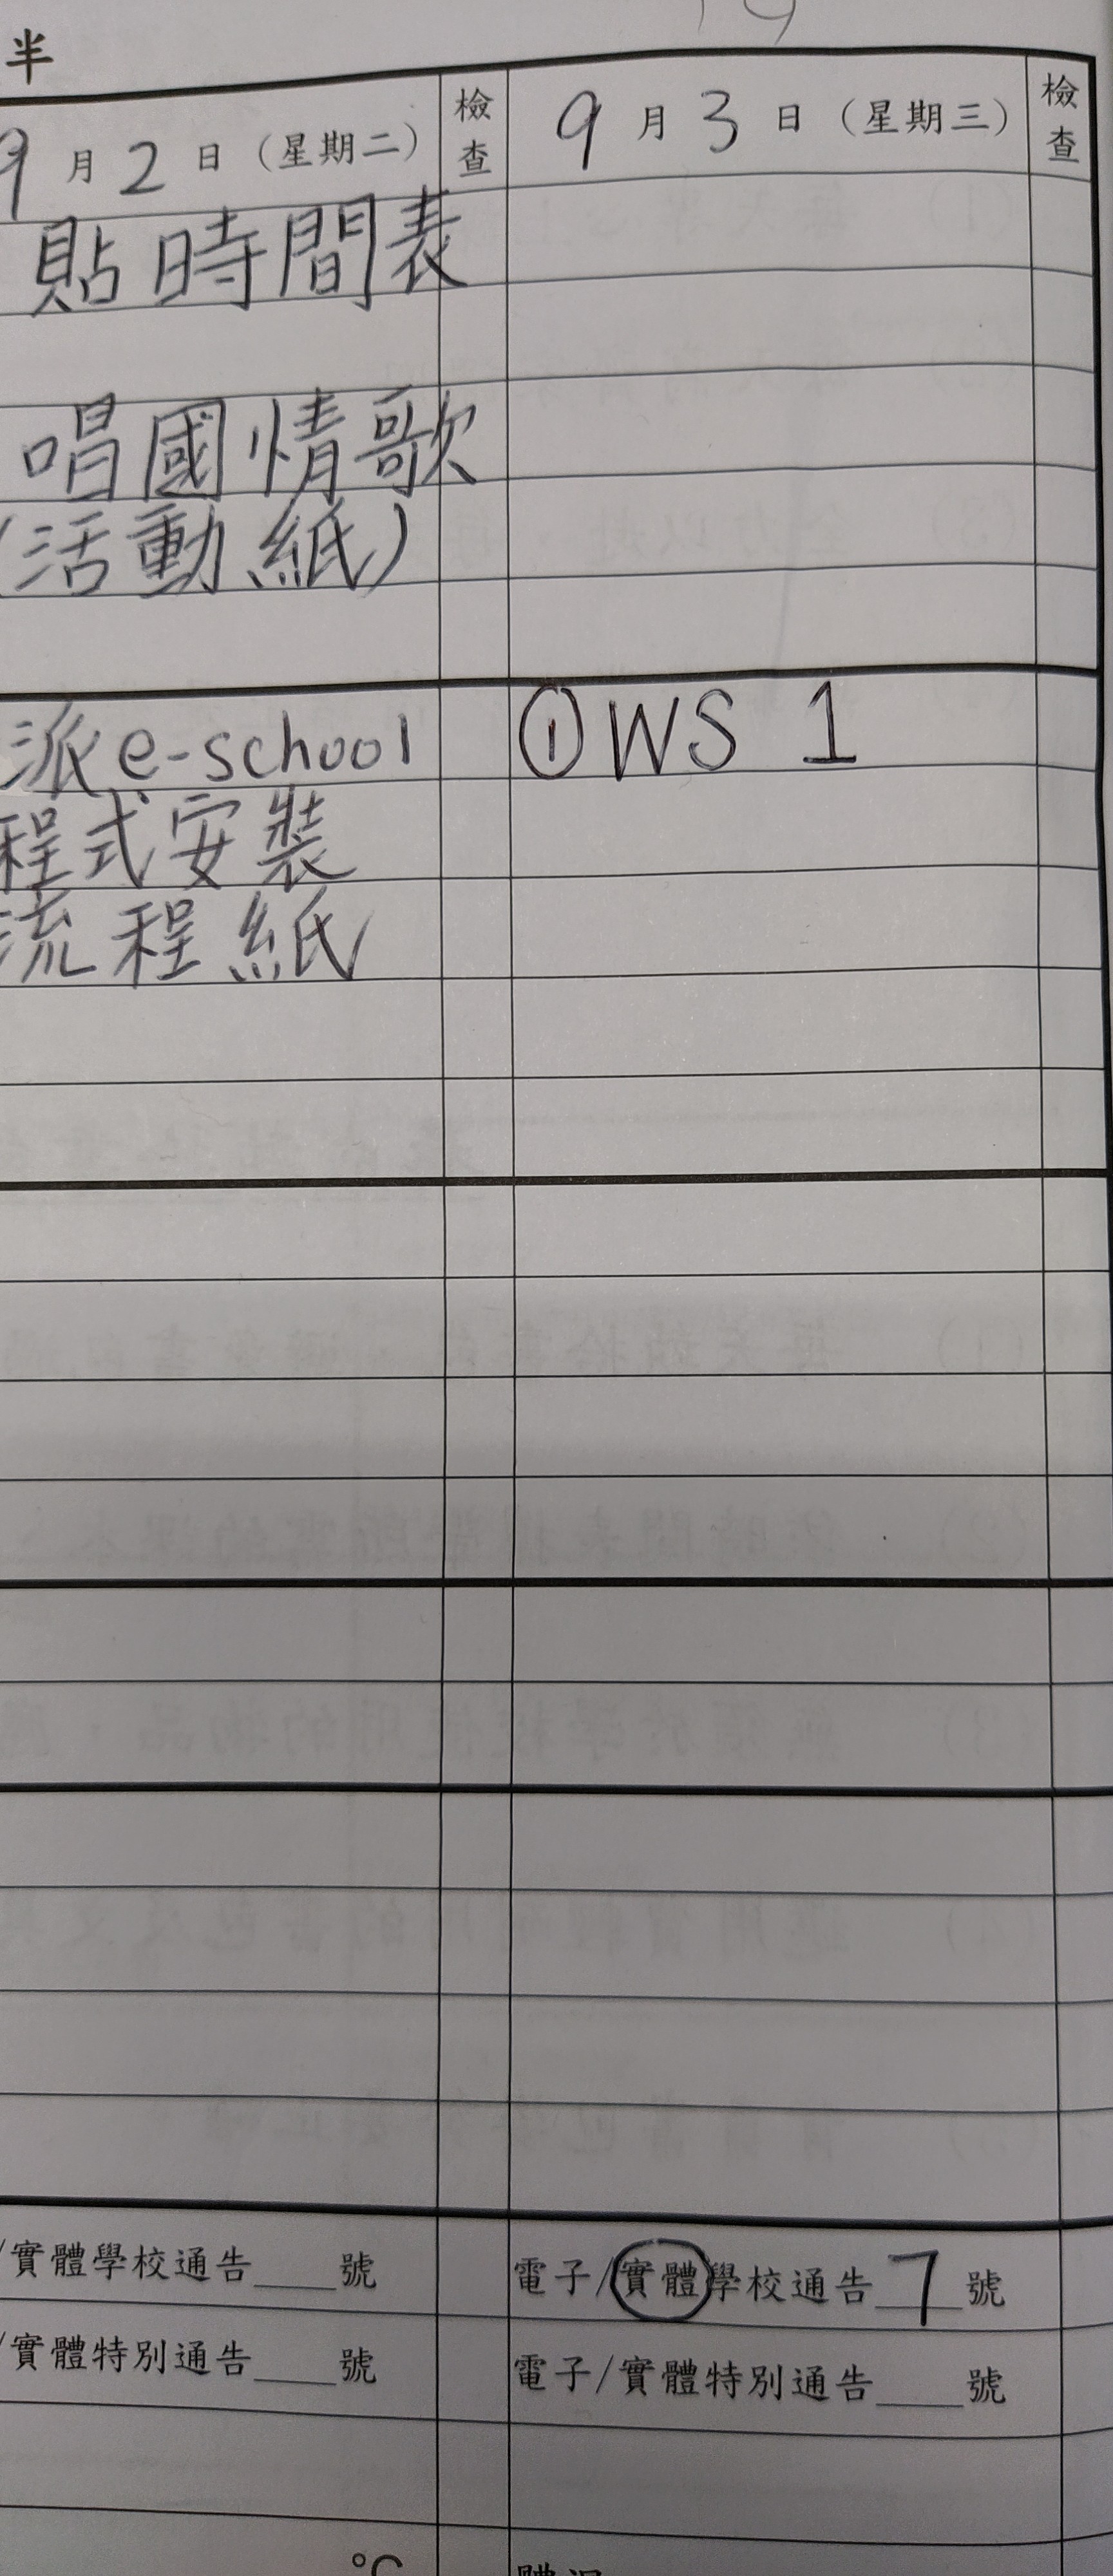 半
9月2日（星期二）
檢查
9月3日（星期三）
檢查
貼時間表
唱國情歌
（活動紙）
派e-school
程式安裝
流程紙
①WS 1
/實體學校通告____號
/實體特別通告____號
電子/實體學校通告 7 號
電子/實體特別通告____號
°C